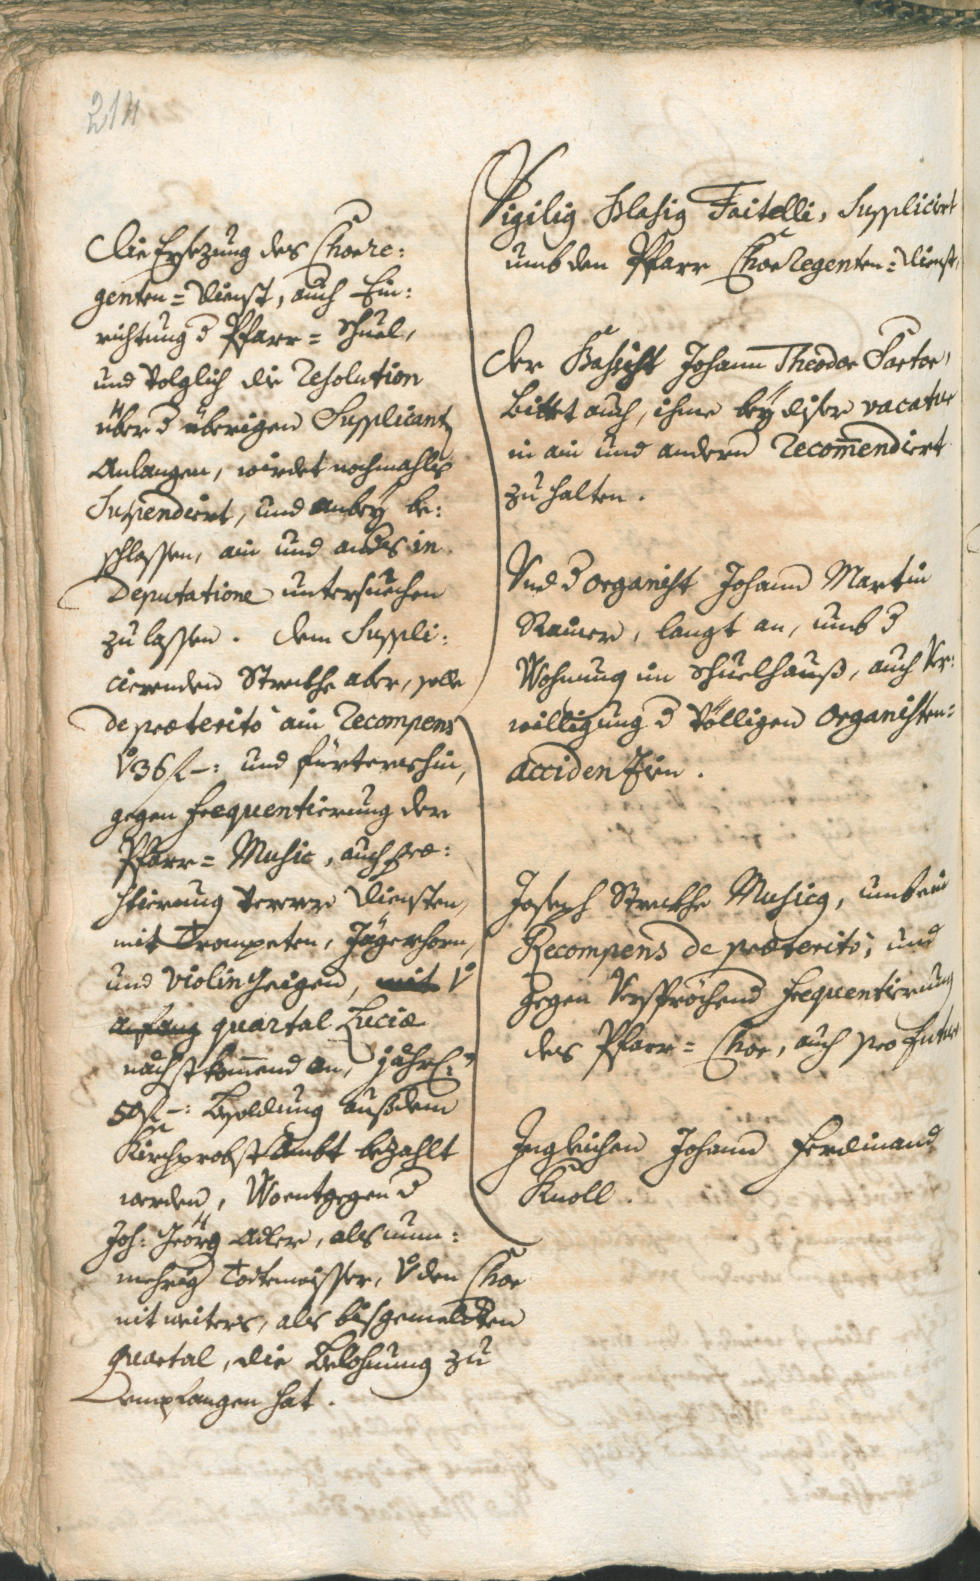 214
Die Ersezung des Chorre:
genten=Dienst, auch Ein:
richtung d Pfarr=Schuel,
und volglich die Resolution
über d übrigen Supplicantn
Anlangen, wirdet nochmahls
Suspendiert, und anbey be:
schlossen, ain und anders in
Deputatione untersuechen
zu lassen. Dem Suppli:
cierenden Strickhe aber, solle
de præterito ain Recompens
v 36 f –: und fürtershin,
gegen frequentierung der
Pfarr=Music, auch præ:
stierung Diensten,
mit Trompeten, Jägerhorn,
und Violin Geigen, mit v
anfang quartal Luciæ
nächstkommend an, jährl:
50 f –: Besoldung aus dem
Kirchprobst Ambt bezahlt
werden, Woentgegen d
Joh: Georg Adler, als nun:
mehrig Todtenmesser, v den Chor
nit weiters, als bis gemeldten
quartal, die Belohnung zu
empfangen hat.
Vigilig Blasig Faitelli, Supplicirt
umb den Pfarr Chor Regenten=Dienst,
Der Bassist Johann Theodor Sartor,
Bittet auch, ihme bey diser vacatur
in ain und andern Recom̄endiert
zu halten.
Und d organist Johann Martin
Rainer, langt an, umb d
Wohnung im Schuelhauß, auch Ver:
willigung d völligen organisten=
accidenzien.
Joseph Strickhe Musicg, umb ein
Recompens de præterito, und
gegen Versprochend frequentierung
des Pfarr=Chor, auch pro futuro
Ingleichen Johann Ferdinand
Knoll.